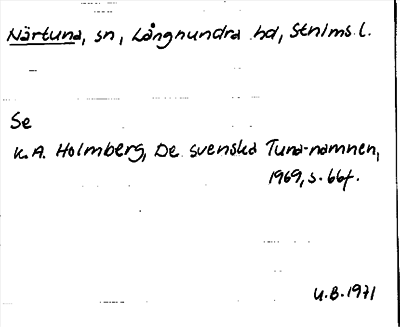 Närtuna, sn, Långhundra hd, Sthlms l.
Se
K.A. Holmberg, De svenska Tuna-namnen,
1969, s. 66f.
U.B. 1971